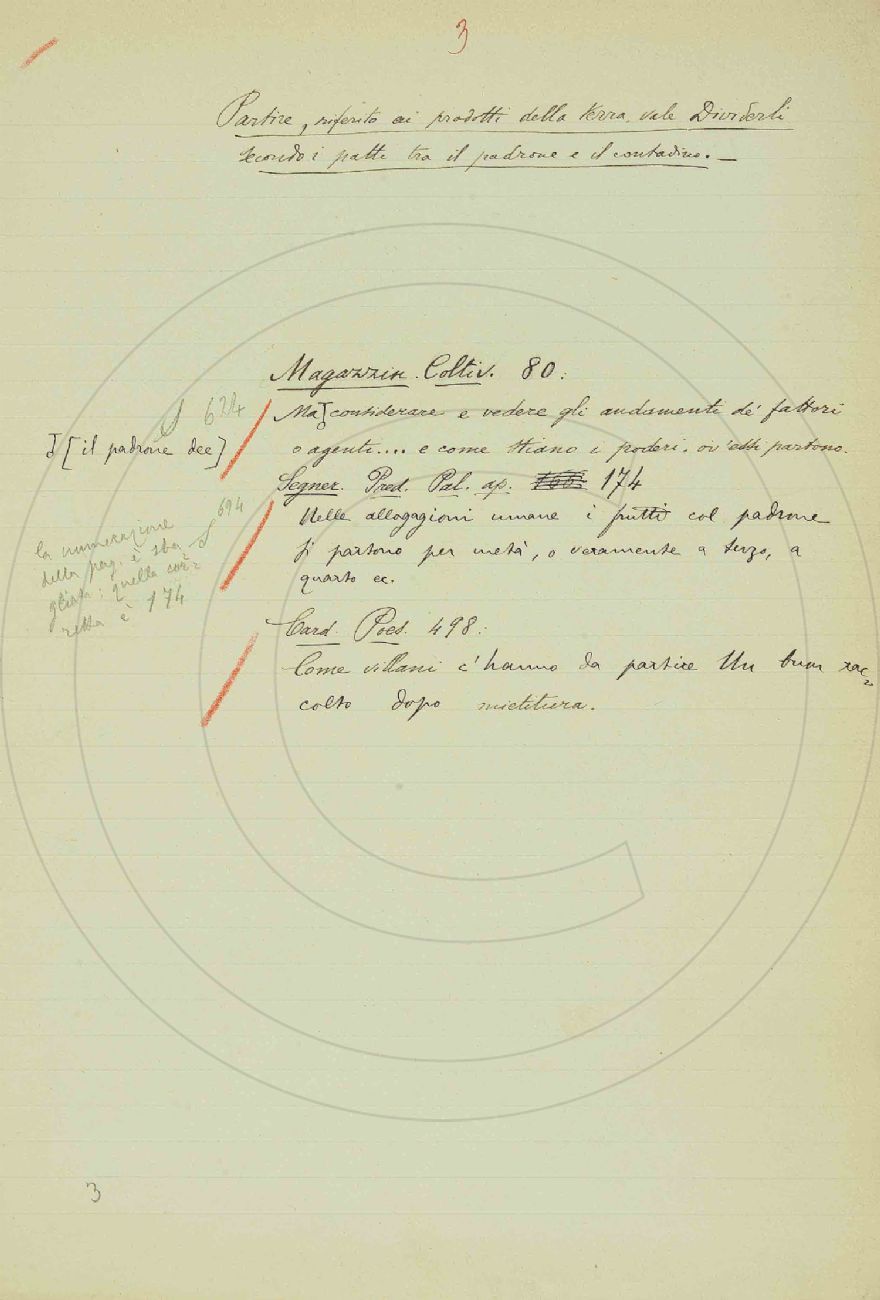 3
Partire, riferito ai prodotti della terra, vale Dividerli
secondo i patti tra il padrone e il contadino. —
Magazzin. Coltiv. 80:
S 624
Ma considerare e vedere gli andamenti de' fattori
[il padrone dee]
o agenti.... e come stiano i poderi, ov'essi partono.
Segner. Pred. Pal. ap. 174
S 694
Nelle allogagioni umane i frutti col padrone
si partono per metà, o veramente a terzo, a
quarto ec.
la numerazione
della pag. è sba
gliata: quella cor=
retta è 174
Card. Poes. 498:
Come villani c'hanno da partire Un buon rac=
colto dopo mietitura.
3